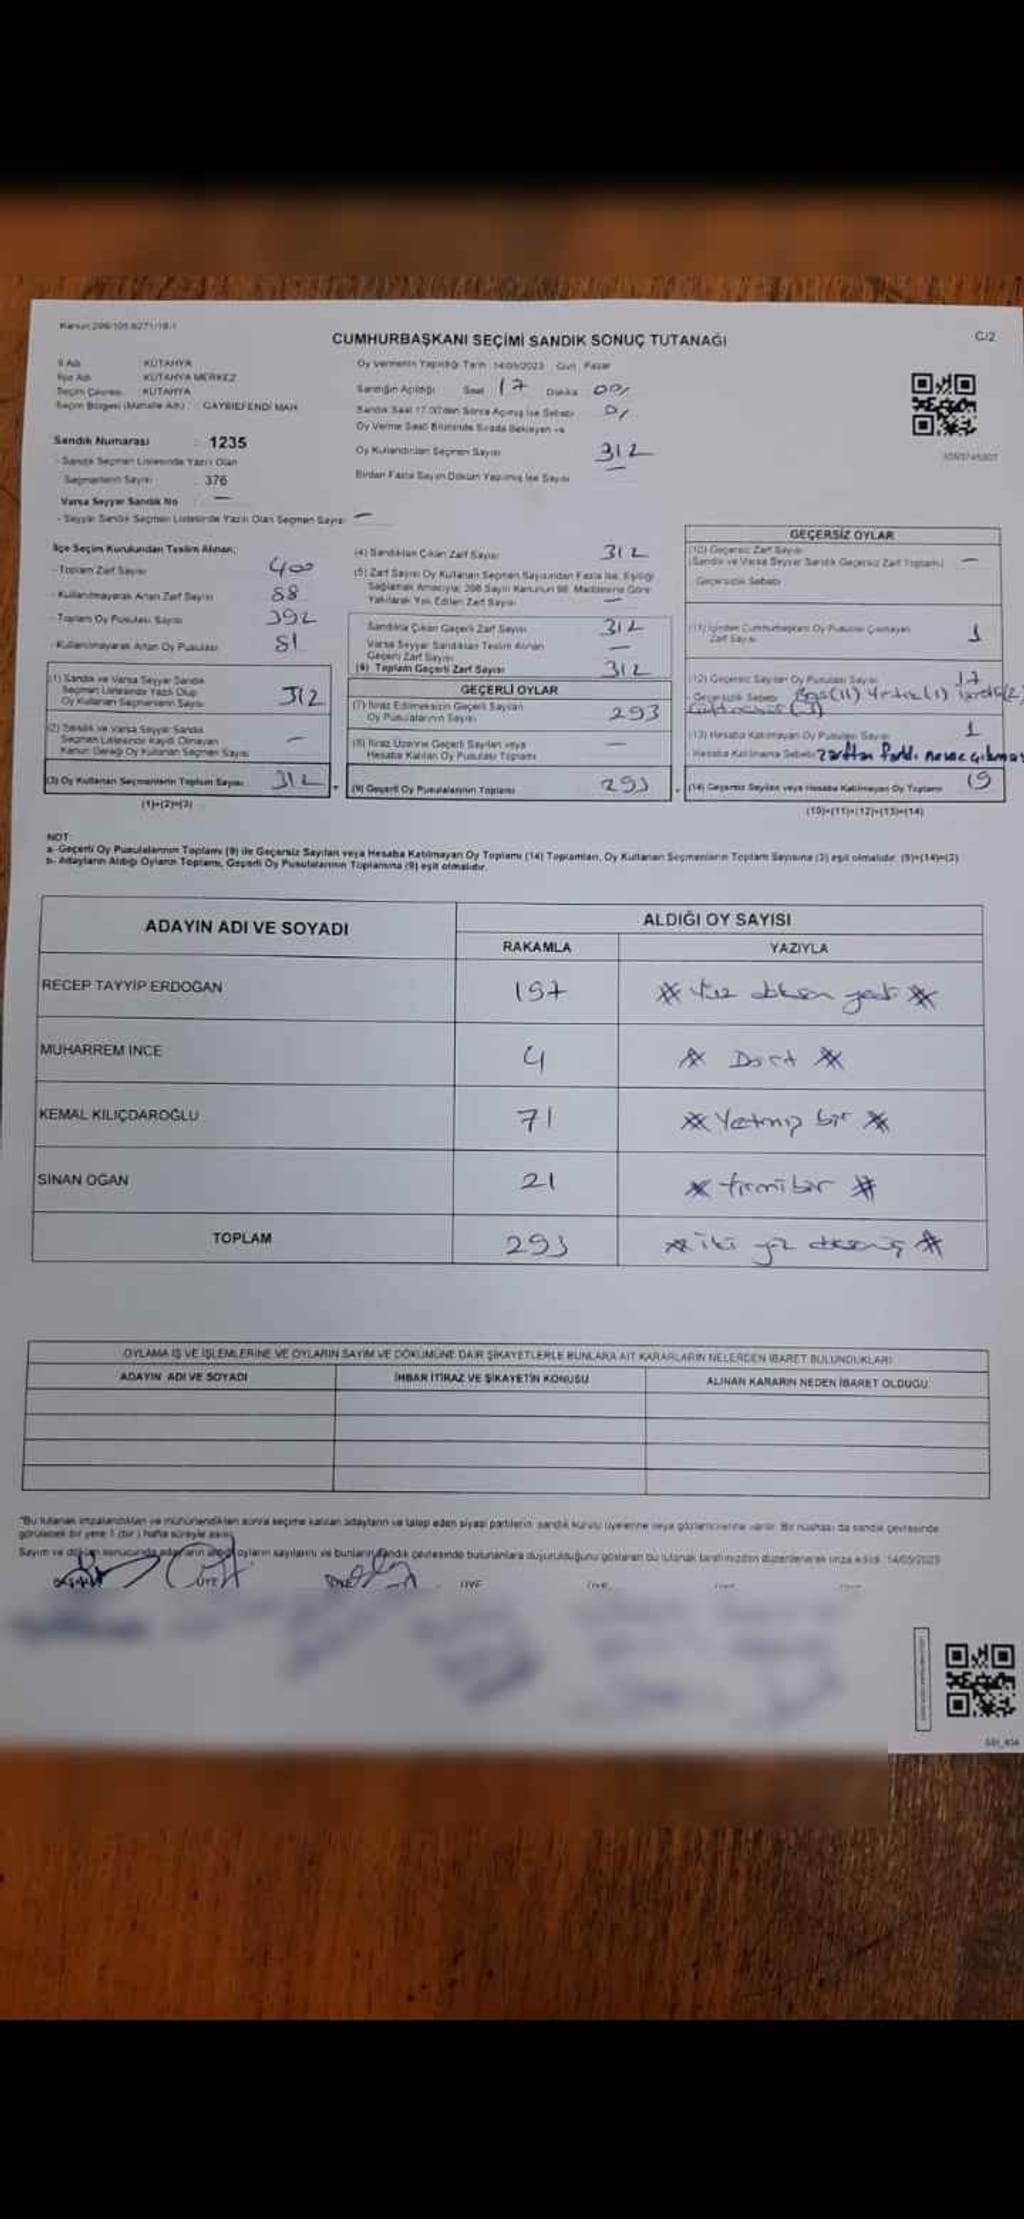 Kanun:298/105,6271/18-1
CUMHURBAŞKANI SEÇİMİ SANDIK SONUÇ TUTANAĞI
C/2
İl Adı : KÜTAHYA
İlçe Adı : KÜTAHYA MERKEZ
Seçim Çevresi : KÜTAHYA
Seçim Bölgesi (Mahalle Adı) : GAYBİEFENDİ MAH.
Oy Vermenin Yapıldığı Tarih : 14/05/2023 Gün : Pazar
Sandığın Açıldığı Saat 17 Dakika 00
Sandık Saat 17.00'den Sonra Açılmış İse Sebebi
Oy Verme Saati Bitiminde Sırada Bekleyen ve
Oy Kullandırılan Seçmen Sayısı 312
Birden Fazla Sayım Döküm Yapılmış İse Sayısı —
Sandık Numarası : 1235
- Sandık Seçmen Listesinde Yazılı Olan
Seçmenlerin Sayısı : 376
Varsa Seyyar Sandık No : —
- Seyyar Sandık Seçmen Listesinde Yazılı Olan Seçmen Sayısı : —
İlçe Seçim Kurulundan Teslim Alınan;
- Toplam Zarf Sayısı 400
- Kullanılmayarak Artan Zarf Sayısı 88
- Toplam Oy Pusulası Sayısı 392
- Kullanılmayarak Artan Oy Pusulası 81
(1) Sandık ve Varsa Seyyar Sandık
Seçmen Listesinde Yazılı Olup
Oy Kullanan Seçmenlerin Sayısı 312
(2) Sandık ve Varsa Seyyar Sandık
Seçmen Listesinde Kaydı Olmayan
Kanun Gereği Oy Kullanan Seçmen Sayısı —
(3) Oy Kullanan Seçmenlerin Toplam Sayısı 312
(1)+(2)=(3)
(4) Sandıktan Çıkan Zarf Sayısı 312
(5) Zarf Sayısı Oy Kullanan Seçmen Sayısından Fazla İse, Eşitliği
Sağlamak Amacıyla; 298 Sayılı Kanunun 98. Maddesine Göre
Yakılarak Yok Edilen Zarf Sayısı —
Sandıkta Çıkan Geçerli Zarf Sayısı 312
Varsa Seyyar Sandıktan Teslim Alınan
Geçerli Zarf Sayısı —
(6) Toplam Geçerli Zarf Sayısı 312
GEÇERLİ OYLAR
(7) İtiraz Edilmeksizin Geçerli Sayılan
Oy Pusulalarının Sayısı 293
(8) İtiraz Üzerine Geçerli Sayılan veya
Hesaba Katılan Oy Pusulası Toplamı —
(9) Geçerli Oy Pusulalarının Toplamı 293
GEÇERSİZ OYLAR
(10) Geçersiz Zarf Sayısı
(Sandık ve Varsa Seyyar Sandık Geçersiz Zarf Toplamı) —
Geçersizlik Sebebi
(11) İçinden Cumhurbaşkanı Oy Pusulası Çıkmayan
Zarf Sayısı 1
(12) Geçersiz Sayılan Oy Pusulası Sayısı 17
- Geçersizlik Sebebi
(13) Hesaba Katılmayan Oy Pusulası Sayısı 1
- Hesaba Katılmama Sebebi zarftan farklı nesne çıkması
(14) Geçersiz Sayılan veya Hesaba Katılmayan Oy Toplamı 19
(10)+(11)+(12)+(13)=(14)
NOT:
a- Geçerli Oy Pusulalarının Toplamı (9) ile Geçersiz Sayılan veya Hesaba Katılmayan Oy Toplamı (14) Toplamları, Oy Kullanan Seçmenlerin Toplam Sayısına (3) eşit olmalıdır. (9)+(14)=(3)
b- Adayların Aldığı Oyların Toplamı, Geçerli Oy Pusulalarının Toplamına (9) eşit olmalıdır.
ADAYIN ADI VE SOYADI
ALDIĞI OY SAYISI
RAKAMLA YAZIYLA
RECEP TAYYİP ERDOĞAN 197 # Yüz doksan yedi #
MUHARREM İNCE 4 # Dört #
KEMAL KILIÇDAROĞLU 71 # Yetmiş bir #
SİNAN OĞAN 21 # Yirmi bir #
TOPLAM 293 # iki yüz doksan üç #
OYLAMA İŞ VE İŞLEMLERİNE VE OYLARIN SAYIM VE DÖKÜMÜNE DAİR ŞİKAYETLERLE BUNLARA AİT KARARLARIN NELERDEN İBARET BULUNDUKLARI
ADAYIN ADI VE SOYADI İHBAR İTİRAZ VE ŞİKAYETİN KONUSU ALINAN KARARIN NEDEN İBARET OLDUĞU
"Bu tutanak imzalandıktan ve mühürlendikten sonra seçime katılan adayların ve talep eden siyasi partilerin sandık kurulu üyelerine veya gözlemcilerine verilir. Bir nüshası da sandık çevresinde
görülecek bir yere 1 (bir ) hafta süreyle asılır.
Sayım ve döküm sonucunda adayların aldığı oyların sayılarını ve bunların sandık çevresinde bulunanlara duyurulduğunu gösteren bu tutanak tarafımızdan düzenlenerek imza edildi. 14/05/2023
BAŞKAN ÜYE ÜYE